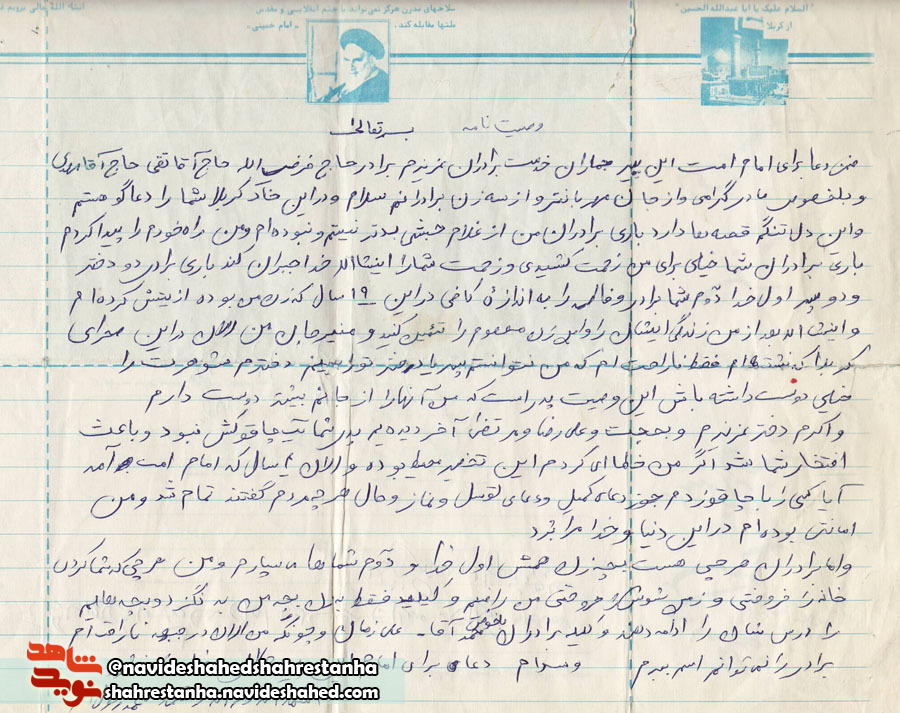 "السلام علیک یا ابا عبدالله الحسین"
از کربلا
سلاحهای مدرن هرگز نمی‌تواند با خشم انقلابی و مقدس
ملتها مقابله کند. «امام خمینی»
انشاء الله
وصیت نامه بسمه تعالی
ضمن دعا برای امام امت این پیر جماران خدمت برادران عزیزم برادر حاج فرض الله حاج آقا تقی حاج آقا مهدی
و بلخصوص مادر گرامی و از جان مهربانتر و از سه زن برادرانم سلام و در این خاک کربلا شما را دعاگو هستم
و این دل تنگم قصه ها دارد باری برادران من از غلام حبشی بدتر نیستم و نبوده ام و من راه خود را پیدا کردم
باری برادران شما خیلی برای من زحمت کشیدی و زحمت شما را اینشاالله خدا جبران کند باری برادر دو دختر
و دو پسر اول خدا دوم شما برادر و فامیل را به اندازه کافی در این ۱۹ سال که زن من بوده اذیتش کرده ام
و اینشاالله بعد از من زندگی ایشان را و این زن معصوم را تئمین کنید و منیر جان من الان در این صحرای
کربلا که نشسته ام فقط ناراحت ام که من نتوانستم پسر یا دختر تو را ببینم دخترم شوهرت را
خیلی دوست داشته باش این وصیت پدر است که من آنها را از جانم بیشتر دوست دارم
و اکرم دختر عزیزم و بهجت و علی رضا و مرتضی آخر دیدیم پدر شما تیپ چاقوکش نبود و باعث
افتخار شما شد اگر من خلافی کردم این تقصیر محیط بوده و الان ۶ سال که امام امت آمد
آیا کسی را با چاقو زدم جز دعای کمیل و دعای توسل و نماز و حال هر چه مردم گفتند تمام شد و من
امانتی بوده ام در این دنیا و خدا مرا برد
و اما برادران هر چی هست بچه زن همش اول خدا و دوم شماها می سپارم و من هر چی که شما کردن
خانه را فروختی و زمین شوش را فروختی من راضیم و کیلید فقط به زن بچه من بد نگذرد و بچه هایم
را درس شان را ادامه دهند و کلید برادران بخصوص محمد آقا - علی زمان و چون که من الان در جبهه ناراحتم
برادر را نمی توانم اسم ببرم والسلام دعا برای امام
شاهد نوید
@navideshahedshahrestanha
shahrestanha.navideshahed.com